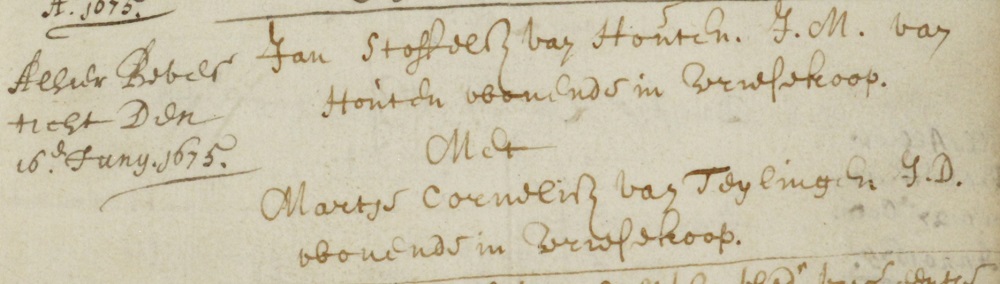 A. 1675.
Alhier Beves
ticht Den
16.d Juny. 1675.
Jan Stoffelsz van Houten. J.M. van
Houten wonende in Vriesekoop.
Met
Martje Cornelisz van Teylingen J.D.
wonende in Vriesekoop.